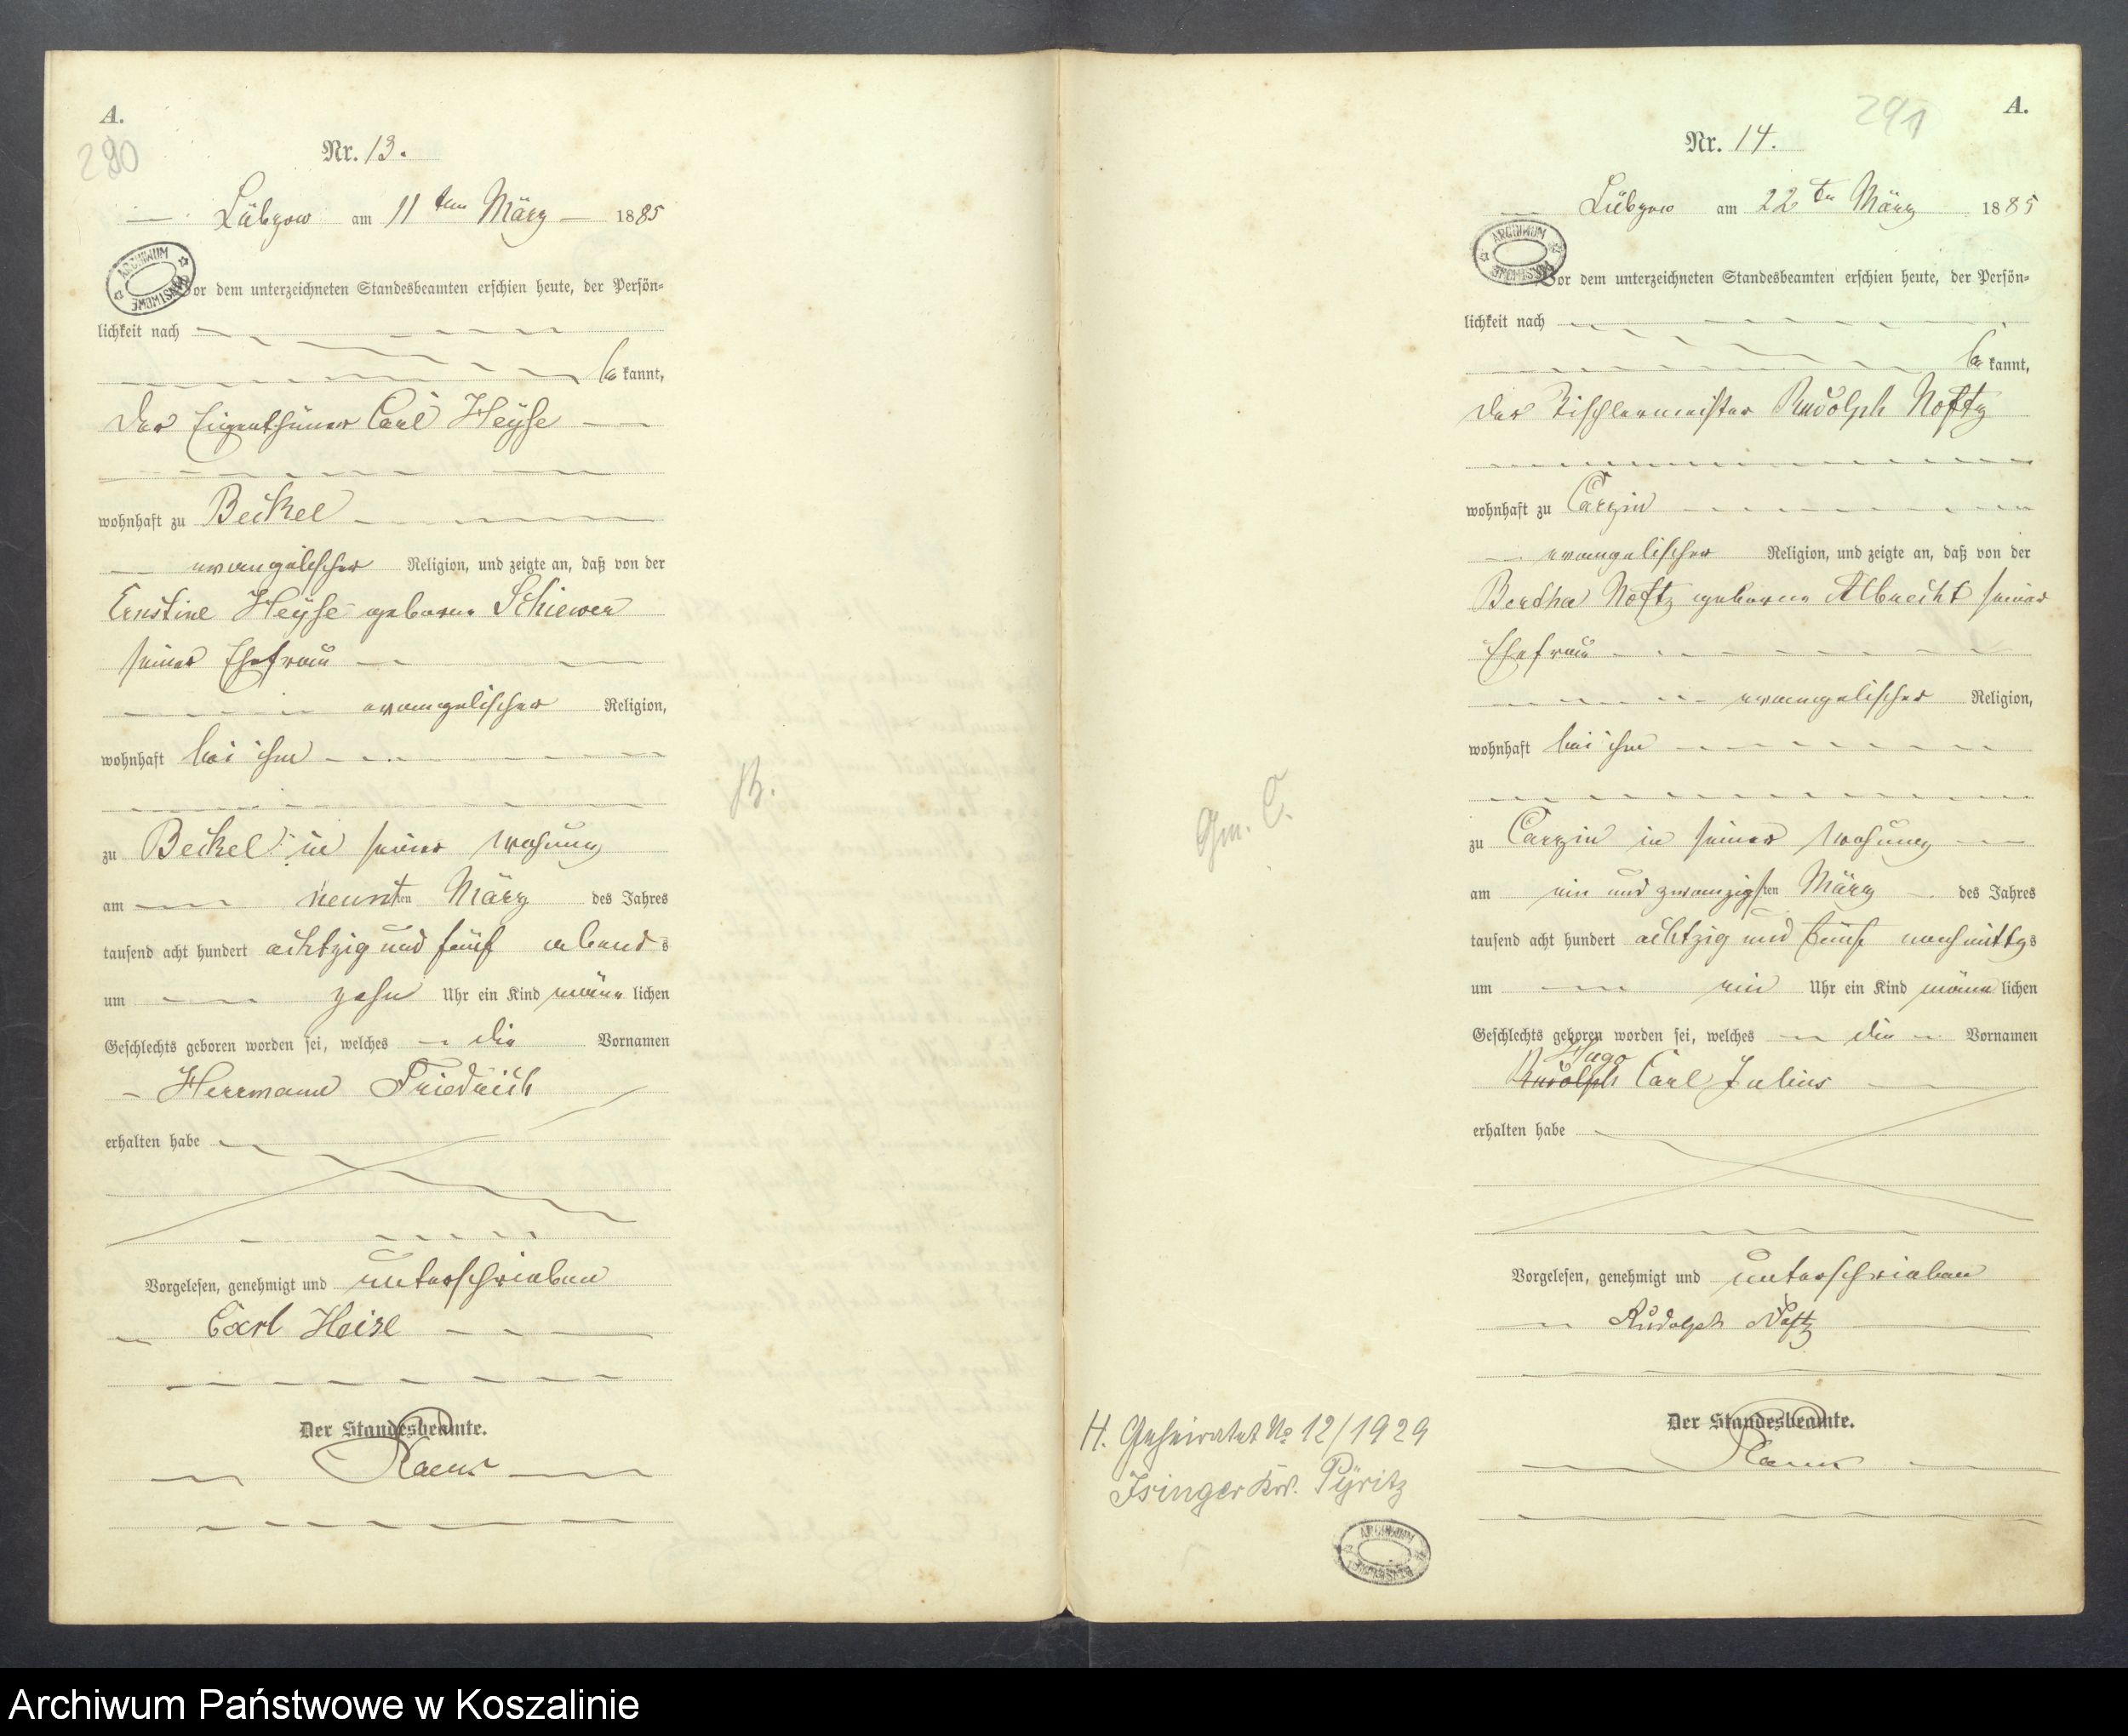 A.
290
Nr. 13.
Lübzow am 11ten März 1885
ARCHIWUM
Vor dem unterzeichneten Standesbeamten erschien heute, der Persön-
lichkeit nach
be kannt,
der Eigenthümer Carl Heyse
wohnhaft zu Beckel
evangelischer Religion, und zeigte an, daß von der
Ernstine Heyse geborne Schiewer
seiner Ehefrau
evangelischer Religion,
wohnhaft bei ihm
zu Beckel in seiner Wohnung
am neunten März des Jahres
tausend acht hundert achtzig und fünf abends
um zehn Uhr ein Kind männlichen
Geschlechts geboren worden sei, welches die Vornamen
Herrmann Friedrich
erhalten habe
Vorgelesen, genehmigt und unterschrieben
Carl Heise
Der Standesbeamte.
B.
291
A.
Nr. 14.
Lübzow am 22ten März 1885
ARCHIWUM
Vor dem unterzeichneten Standesbeamten erschien heute, der Persön-
lichkeit nach
be kannt,
der Tischlermeister Rudolph Noftz
wohnhaft zu Carzin
evangelischer Religion, und zeigte an, daß von der
Bertha Noftz geborne Albrecht seiner
Ehefrau
evangelischer Religion,
wohnhaft bei ihm
zu Carzin in seiner Wohnung
am ein und zwanzigsten März des Jahres
tausend acht hundert achtzig und fünf nachmittgs
um ein Uhr ein Kind männlichen
Geschlechts geboren worden sei, welches die Vornamen
Hugo
Rudolph Carl Julius
erhalten habe
Vorgelesen, genehmigt und unterschrieben
Rudolph Noftz
Der Standesbeamte.
Gm. C.
H. Geheiratet No 12/1929
Isinger Krs. Pyritz
ARCHIWUM
Archiwum Państwowe w Koszalinie